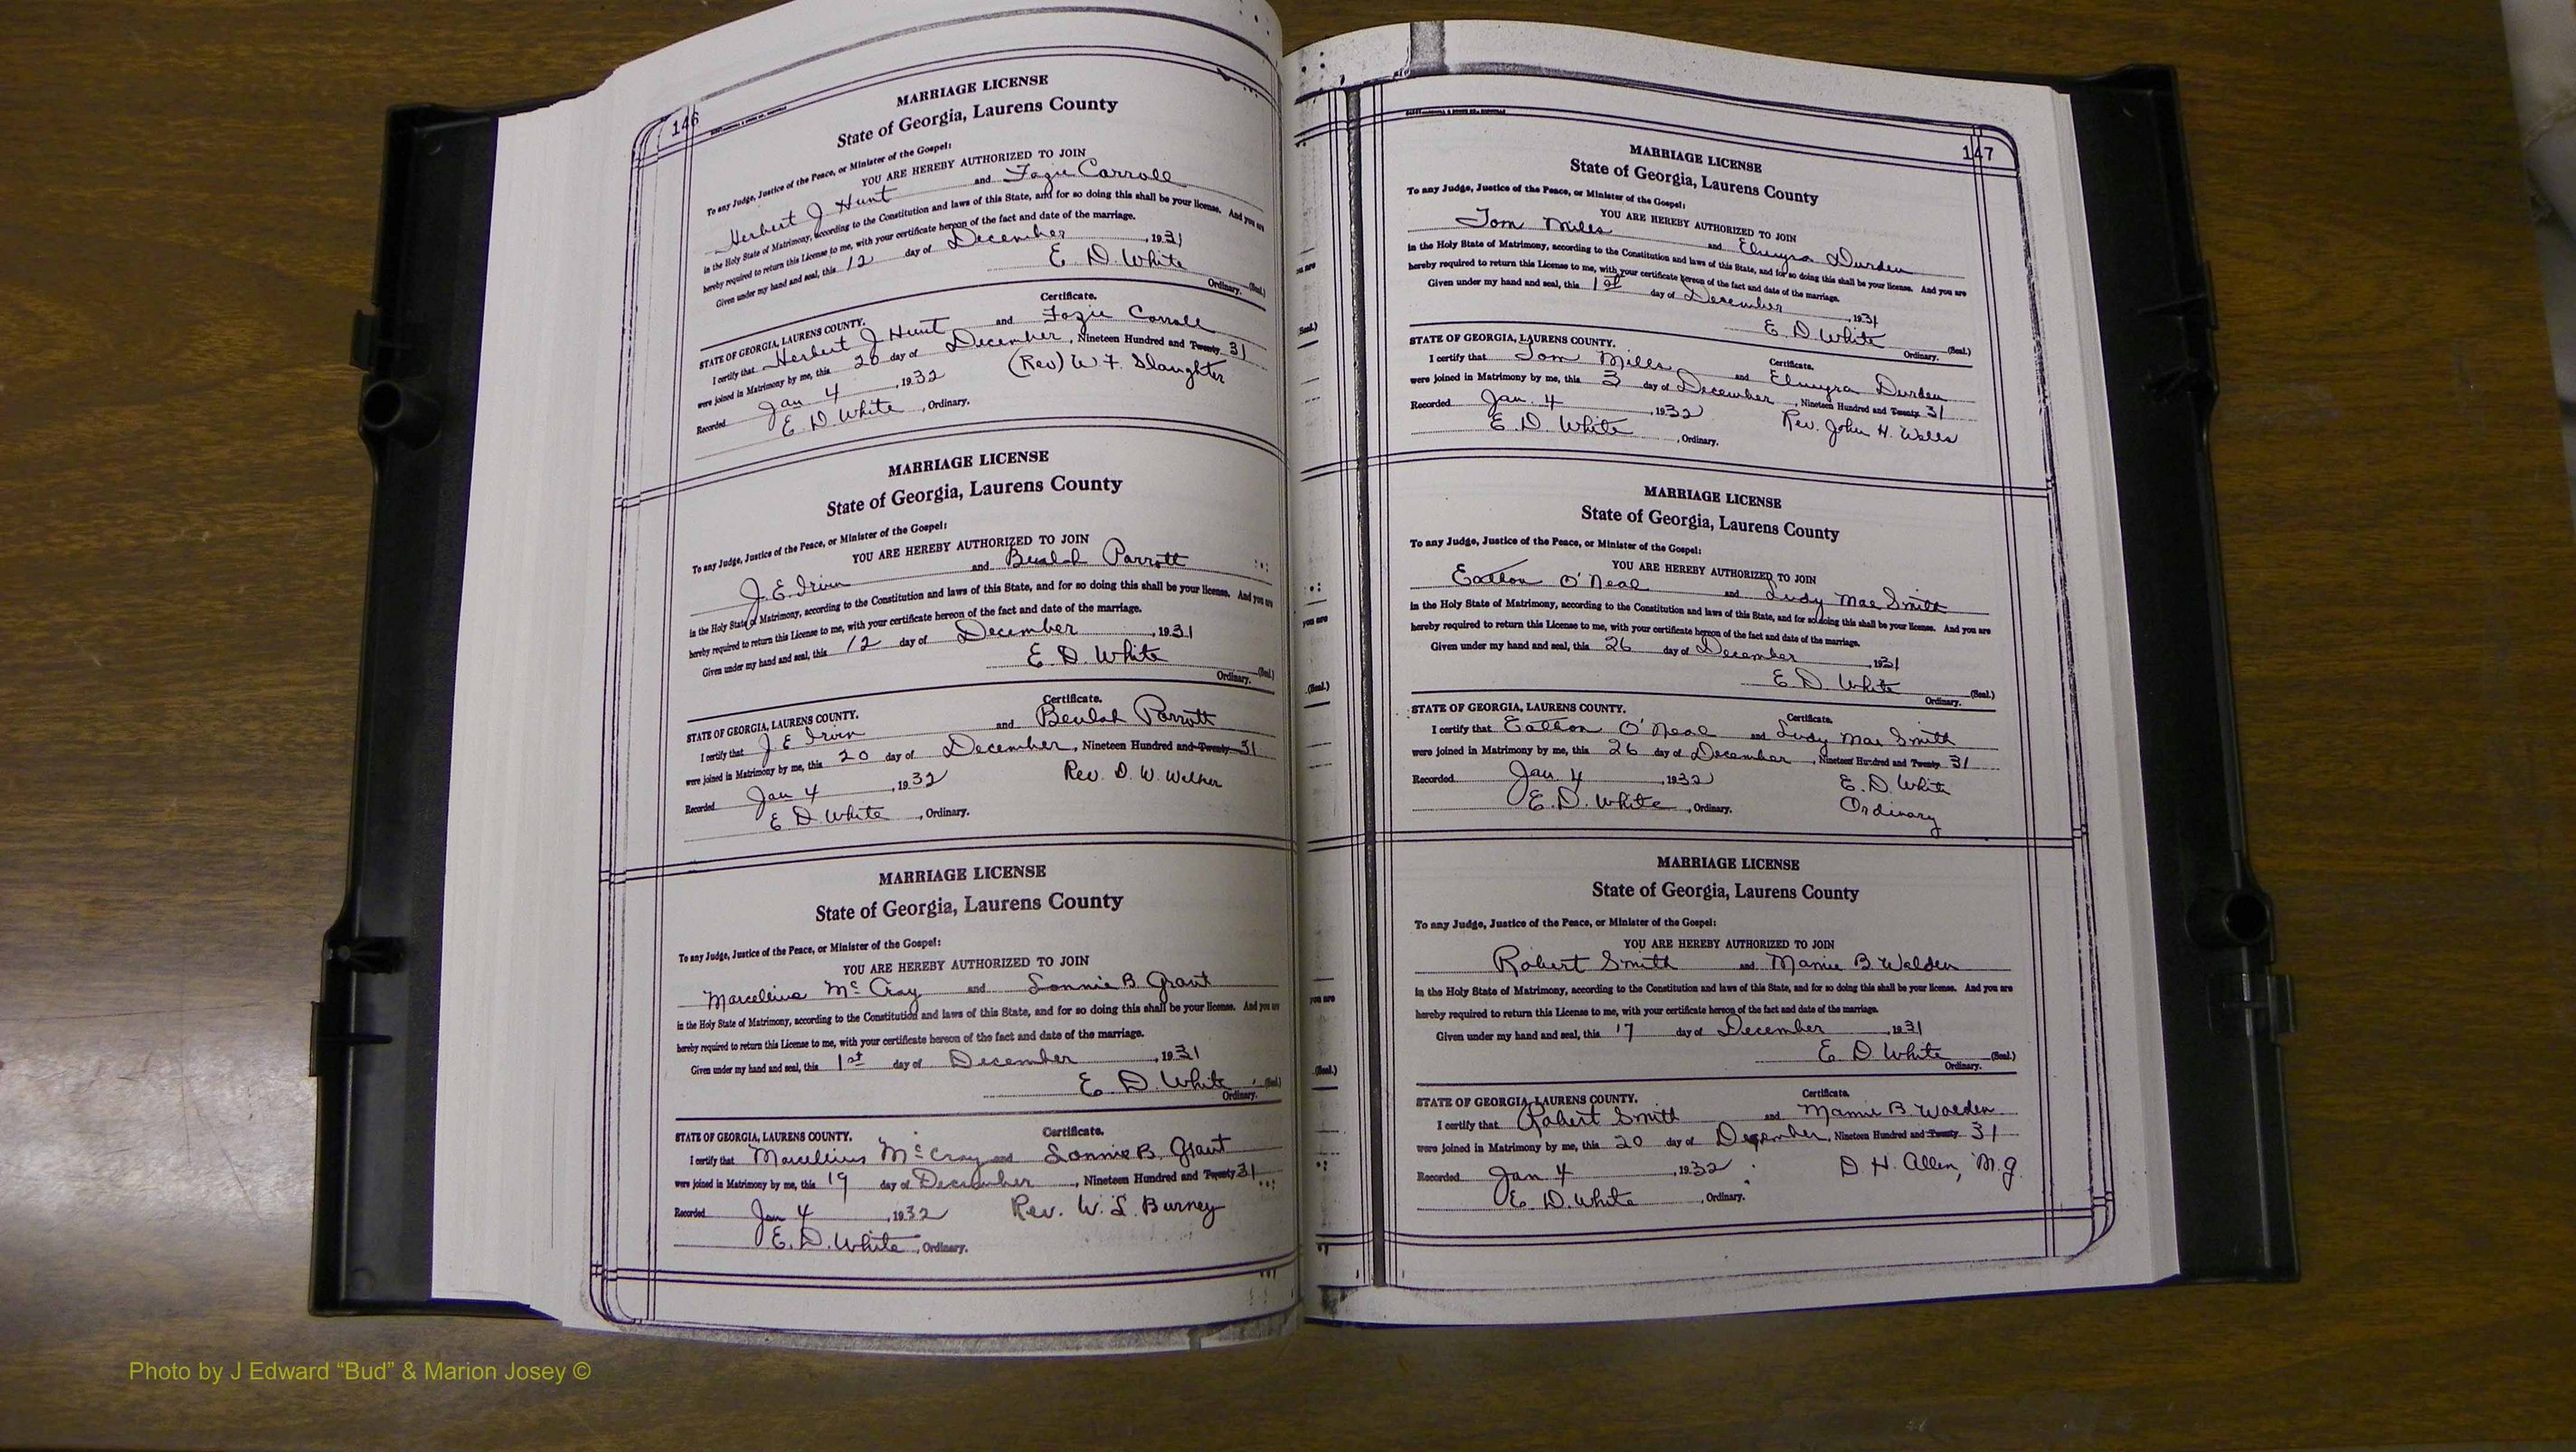 146
MARRIAGE LICENSE
State of Georgia, Laurens County
To any Judge, Justice of the Peace, or Minister of the Gospel:
YOU ARE HEREBY AUTHORIZED TO JOIN
Herbert J Hunt and Fozie Carroll
in the Holy State of Matrimony, according to the Constitution and laws of this State, and for so doing this shall be your license. And you are
hereby required to return this License to me, with your certificate hereon of the fact and date of the marriage.
Given under my hand and seal, this 12 day of December, 1931
E D. White (Seal.)
Ordinary.
Certificate.
STATE OF GEORGIA, LAURENS COUNTY.
I certify that Herbert J Hunt and Fozie Carroll
were joined in Matrimony by me, this 20 day of December, Nineteen Hundred and Twenty 31
Recorded Jan 4, 1932 (Rev) W. F. Slaughter
E D. White, Ordinary.
MARRIAGE LICENSE
State of Georgia, Laurens County
To any Judge, Justice of the Peace, or Minister of the Gospel:
YOU ARE HEREBY AUTHORIZED TO JOIN
J. E. Irvin and Beulah Parrott
in the Holy State of Matrimony, according to the Constitution and laws of this State, and for so doing this shall be your license. And you are
hereby required to return this License to me, with your certificate hereon of the fact and date of the marriage.
Given under my hand and seal, this 12 day of December, 1931
E. D. White (Seal.)
Ordinary.
Certificate.
STATE OF GEORGIA, LAURENS COUNTY.
I certify that J E Irvin and Beulah Parrott
were joined in Matrimony by me, this 20 day of December, Nineteen Hundred and Twenty 31
Recorded Jan 4, 1932 Rev. D. W.
E D. White, Ordinary.
MARRIAGE LICENSE
State of Georgia, Laurens County
To any Judge, Justice of the Peace, or Minister of the Gospel:
YOU ARE HEREBY AUTHORIZED TO JOIN
Marcellius McCray and Lonnie B. Grant
in the Holy State of Matrimony, according to the Constitution and laws of this State, and for so doing this shall be your license. And you are
hereby required to return this License to me, with your certificate hereon of the fact and date of the marriage.
Given under my hand and seal, this 1st day of December, 1931
E. D. White (Seal.)
Ordinary.
Certificate.
STATE OF GEORGIA, LAURENS COUNTY.
I certify that Marcellius McCray and Lonnie B. Grant
were joined in Matrimony by me, this 19 day of December, Nineteen Hundred and Twenty 31
Recorded Jan 4, 1932 Rev. W. L. Burney
E. D. White, Ordinary.
147
MARRIAGE LICENSE
State of Georgia, Laurens County
To any Judge, Justice of the Peace, or Minister of the Gospel:
YOU ARE HEREBY AUTHORIZED TO JOIN
Tom Mills and Elmyra Durden
in the Holy State of Matrimony, according to the Constitution and laws of this State, and for so doing this shall be your license. And you are
hereby required to return this License to me, with your certificate hereon of the fact and date of the marriage.
Given under my hand and seal, this 1st day of December, 1931
E D. White (Seal.)
Ordinary.
STATE OF GEORGIA, LAURENS COUNTY.
Certificate.
I certify that Tom Mills and Elmyra Durden
were joined in Matrimony by me, this 3 day of December, Nineteen Hundred and Twenty 31
Recorded Jan. 4, 1932 Rev. John H. Wells
E. D. White, Ordinary.
MARRIAGE LICENSE
State of Georgia, Laurens County
To any Judge, Justice of the Peace, or Minister of the Gospel:
YOU ARE HEREBY AUTHORIZED TO JOIN
Eatton O'Neal and Ludy Mae Smith
in the Holy State of Matrimony, according to the Constitution and laws of this State, and for so doing this shall be your license. And you are
hereby required to return this License to me, with your certificate hereon of the fact and date of the marriage.
Given under my hand and seal, this 26 day of December, 1931
E D. White (Seal.)
Ordinary.
STATE OF GEORGIA, LAURENS COUNTY.
Certificate.
I certify that Eatton O'Neal and Ludy Mae Smith
were joined in Matrimony by me, this 26 day of December, Nineteen Hundred and Twenty 31
Recorded Jan 4, 1932 E. D. White
E. D. White, Ordinary. Ordinary
MARRIAGE LICENSE
State of Georgia, Laurens County
To any Judge, Justice of the Peace, or Minister of the Gospel:
YOU ARE HEREBY AUTHORIZED TO JOIN
Robert Smith and Mamie B Walden
in the Holy State of Matrimony, according to the Constitution and laws of this State, and for so doing this shall be your license. And you are
hereby required to return this License to me, with your certificate hereon of the fact and date of the marriage.
Given under my hand and seal, this 17 day of December, 1931
E D. White (Seal.)
Ordinary.
Certificate.
STATE OF GEORGIA, LAURENS COUNTY.
I certify that Robert Smith and Mamie B Walden
were joined in Matrimony by me, this 20 day of December, Nineteen Hundred and Twenty 31
Recorded Jan 4, 1932 D. H. Allen, M.G.
E. D. White, Ordinary.
Photo by J Edward “Bud” & Marion Josey ©